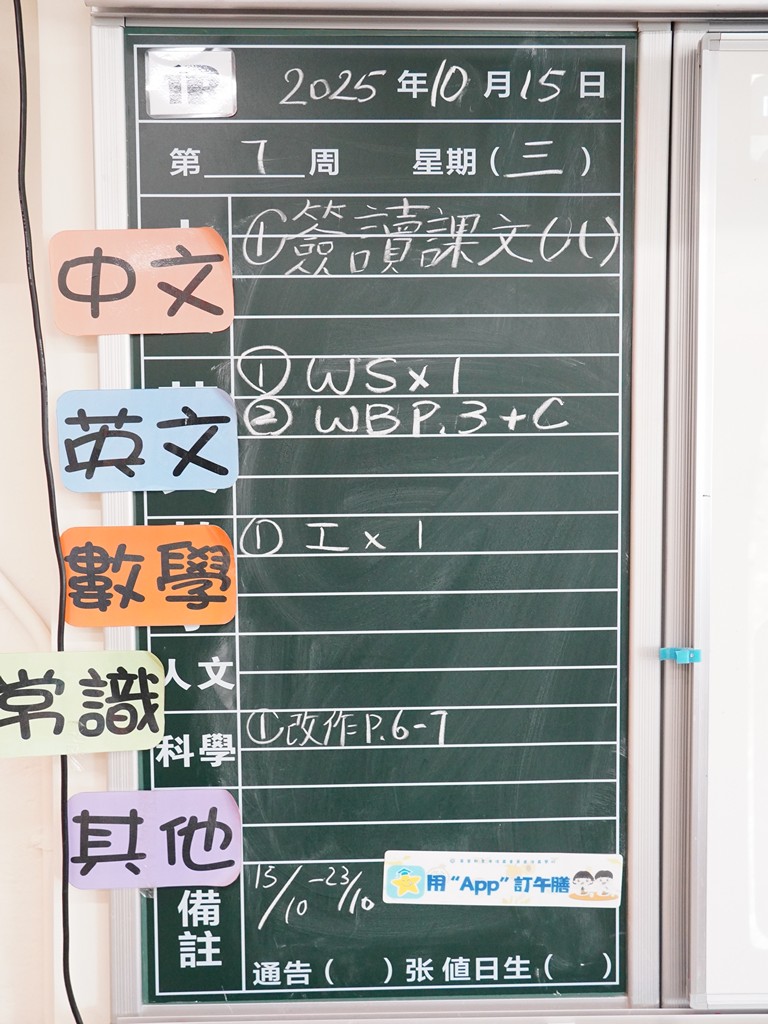 2025年10月15日
第7周 星期(三)
中文
①簽讀課文(八)
英文
①WS x 1
②WB P.3+C
數學
①工 x 1
人文
常識
科學
①改作P.6-7
其他
備註
15/10-23/10
用“App”訂午膳
通告( )张 值日生( )